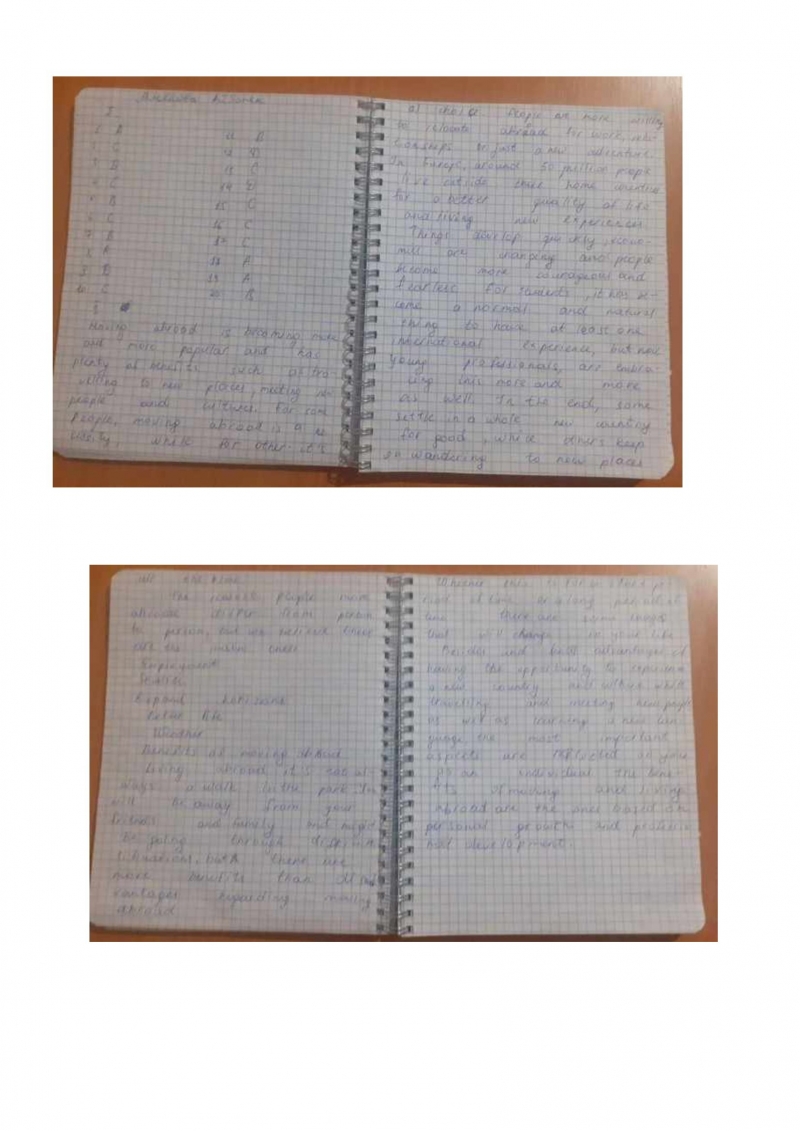 I
1 A
2 C
3 D
4 C
5 B
6 C
7 B
8 A
9 D
10 C
11 B
12 D
13 C
14 D
15 C
16 C
17 C
18 A
19 A
20 B
Moving abroad is becoming more
and more popular and has
plenty of benefits such as tra-
velling to new places, meeting new
people and cultures. For some
people, moving abroad is a ne
cessity, while for other it's
a choice. People are more willing
to relocate abroad for work, rela
tionships or just a new adventure.
In Europe, around 50 million people
live outside their home countries
for a better quality of life
and living new experiences
Things develop quickly, econo-
mies are changing and people
become more courageous and
fearless. For students, it has be-
come a normal and natural
thing to have at least one
international experience, but now
young professionals, are embra-
cing this more and more
as well. In the end, some
settle in a whole new country
for good, while others keep
on wandering to new places
all the time.
The reasons people move
abroad differ from person
to person, but we believe these
are the main ones:
Employment
Studies
Expand horizons
Better life
Weather
Benefits of moving abroad
Living abroad it's not al-
ways a walk in the park. You
will be away from your
friends and family and might
be going through difficult
situations, but there are
more benefits than disad
vantages regarding moving
abroad
Whether this is for a short pe-
riod of time or a long period of
time there are some things
that will change in your life.
Besides and first advantages of
having the opportunity to experience
a new country and culture while
travelling and meeting new people
as well as learning a new lan-
guage the most important
aspects are reflected on you
as an individual. The bene-
fits of moving and living
abroad are the ones based on
personal growth and professio
nal development.